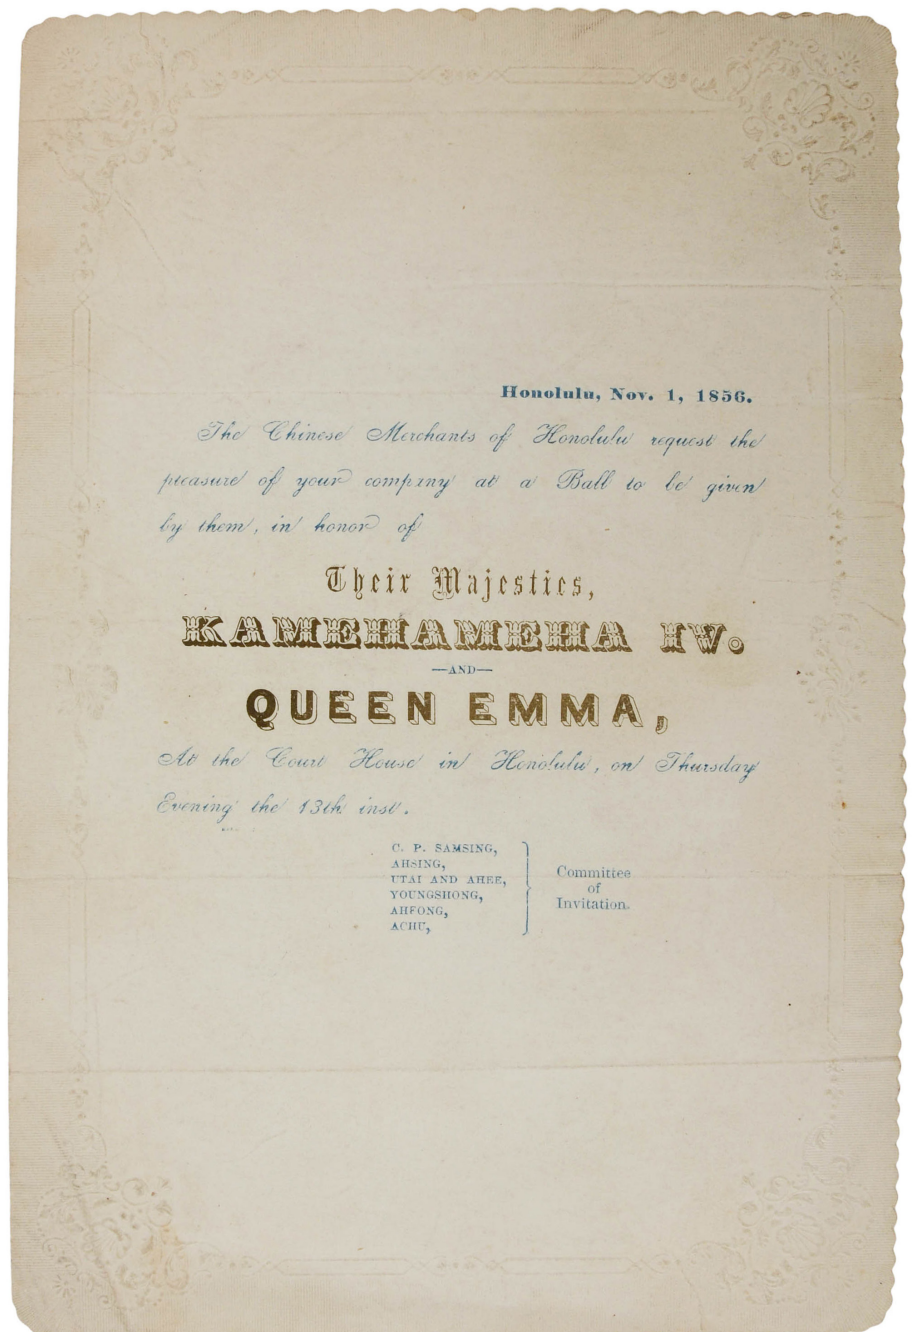 Honolulu, Nov. 1, 1856.
The Chinese Merchants of Honolulu request the
pleasure of your company at a Ball to be given
by them, in honor of
Their Majesties,
KAMEHAMEHA IV.
—AND—
QUEEN EMMA,
At the Court House in Honolulu, on Thursday
Evening the 13th inst.
C. P. SAMSING,
AHSING,
UTAI AND AHEE,
YOUNGSHONG,
AHFONG,
ACHU,
Committee
of
Invitation.